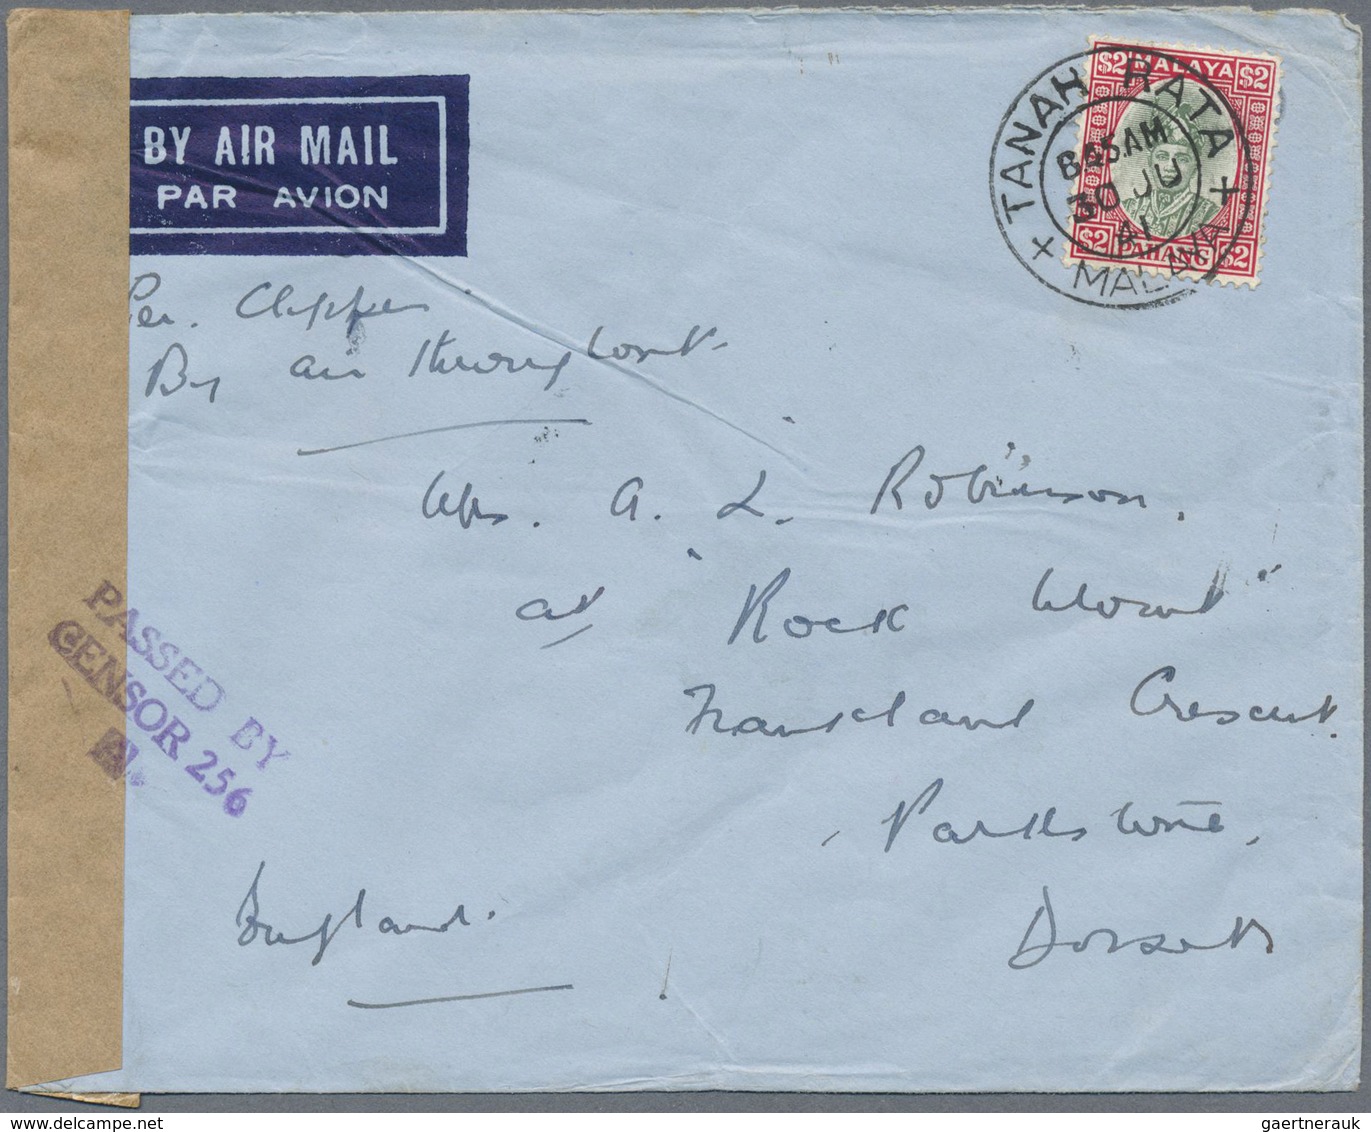 BY AIR MAIL
PAR AVION
$2 MALAYA $2
$2 PAHANG $2
TANAH RATA
8.45AM
30 JU
41
MALAYA
Per. Clipper
By air throughout.
Mrs. A. L. Robinson.
at "Rock Mount"
Frankland Crescent.
Parkstone.
Dorset
England.
PASSED BY
CENSOR 256
A.
delcampe.net
gaertnerauk